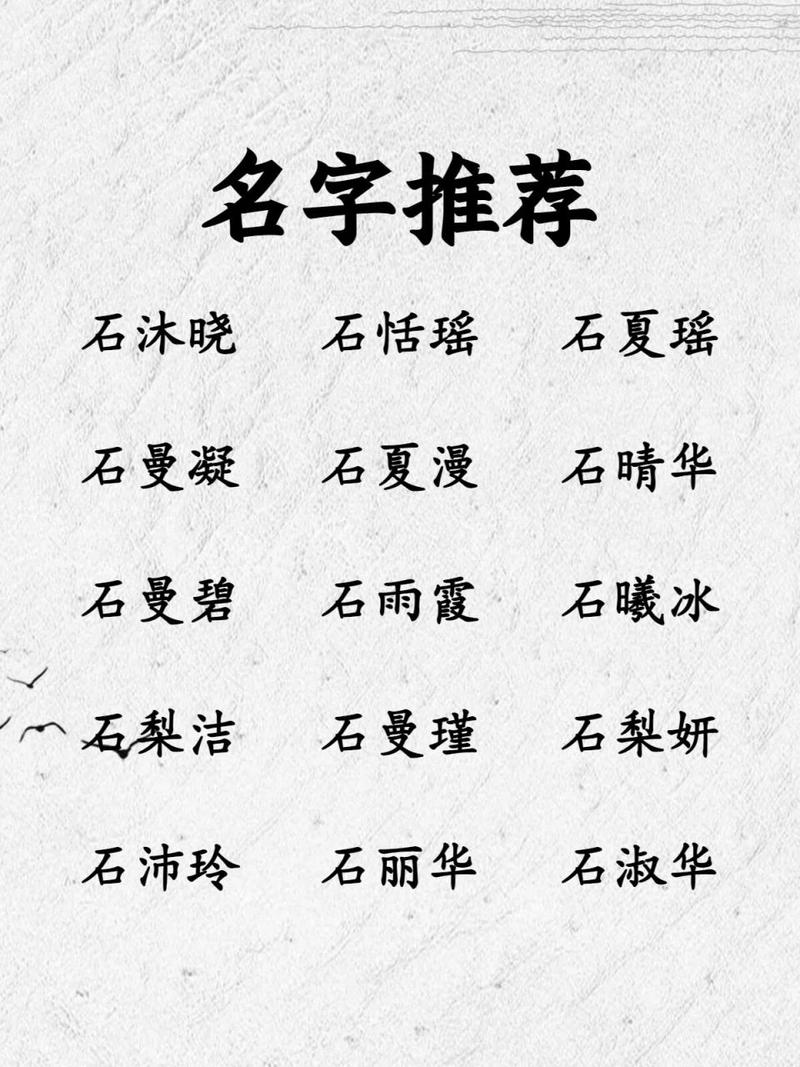 名字推荐
石沐晓 石恬瑶 石夏瑶
石曼凝 石夏漫 石晴华
石曼碧 石雨霞 石曦冰
石梨洁 石曼瑾 石梨妍
石沛玲 石丽华 石淑华